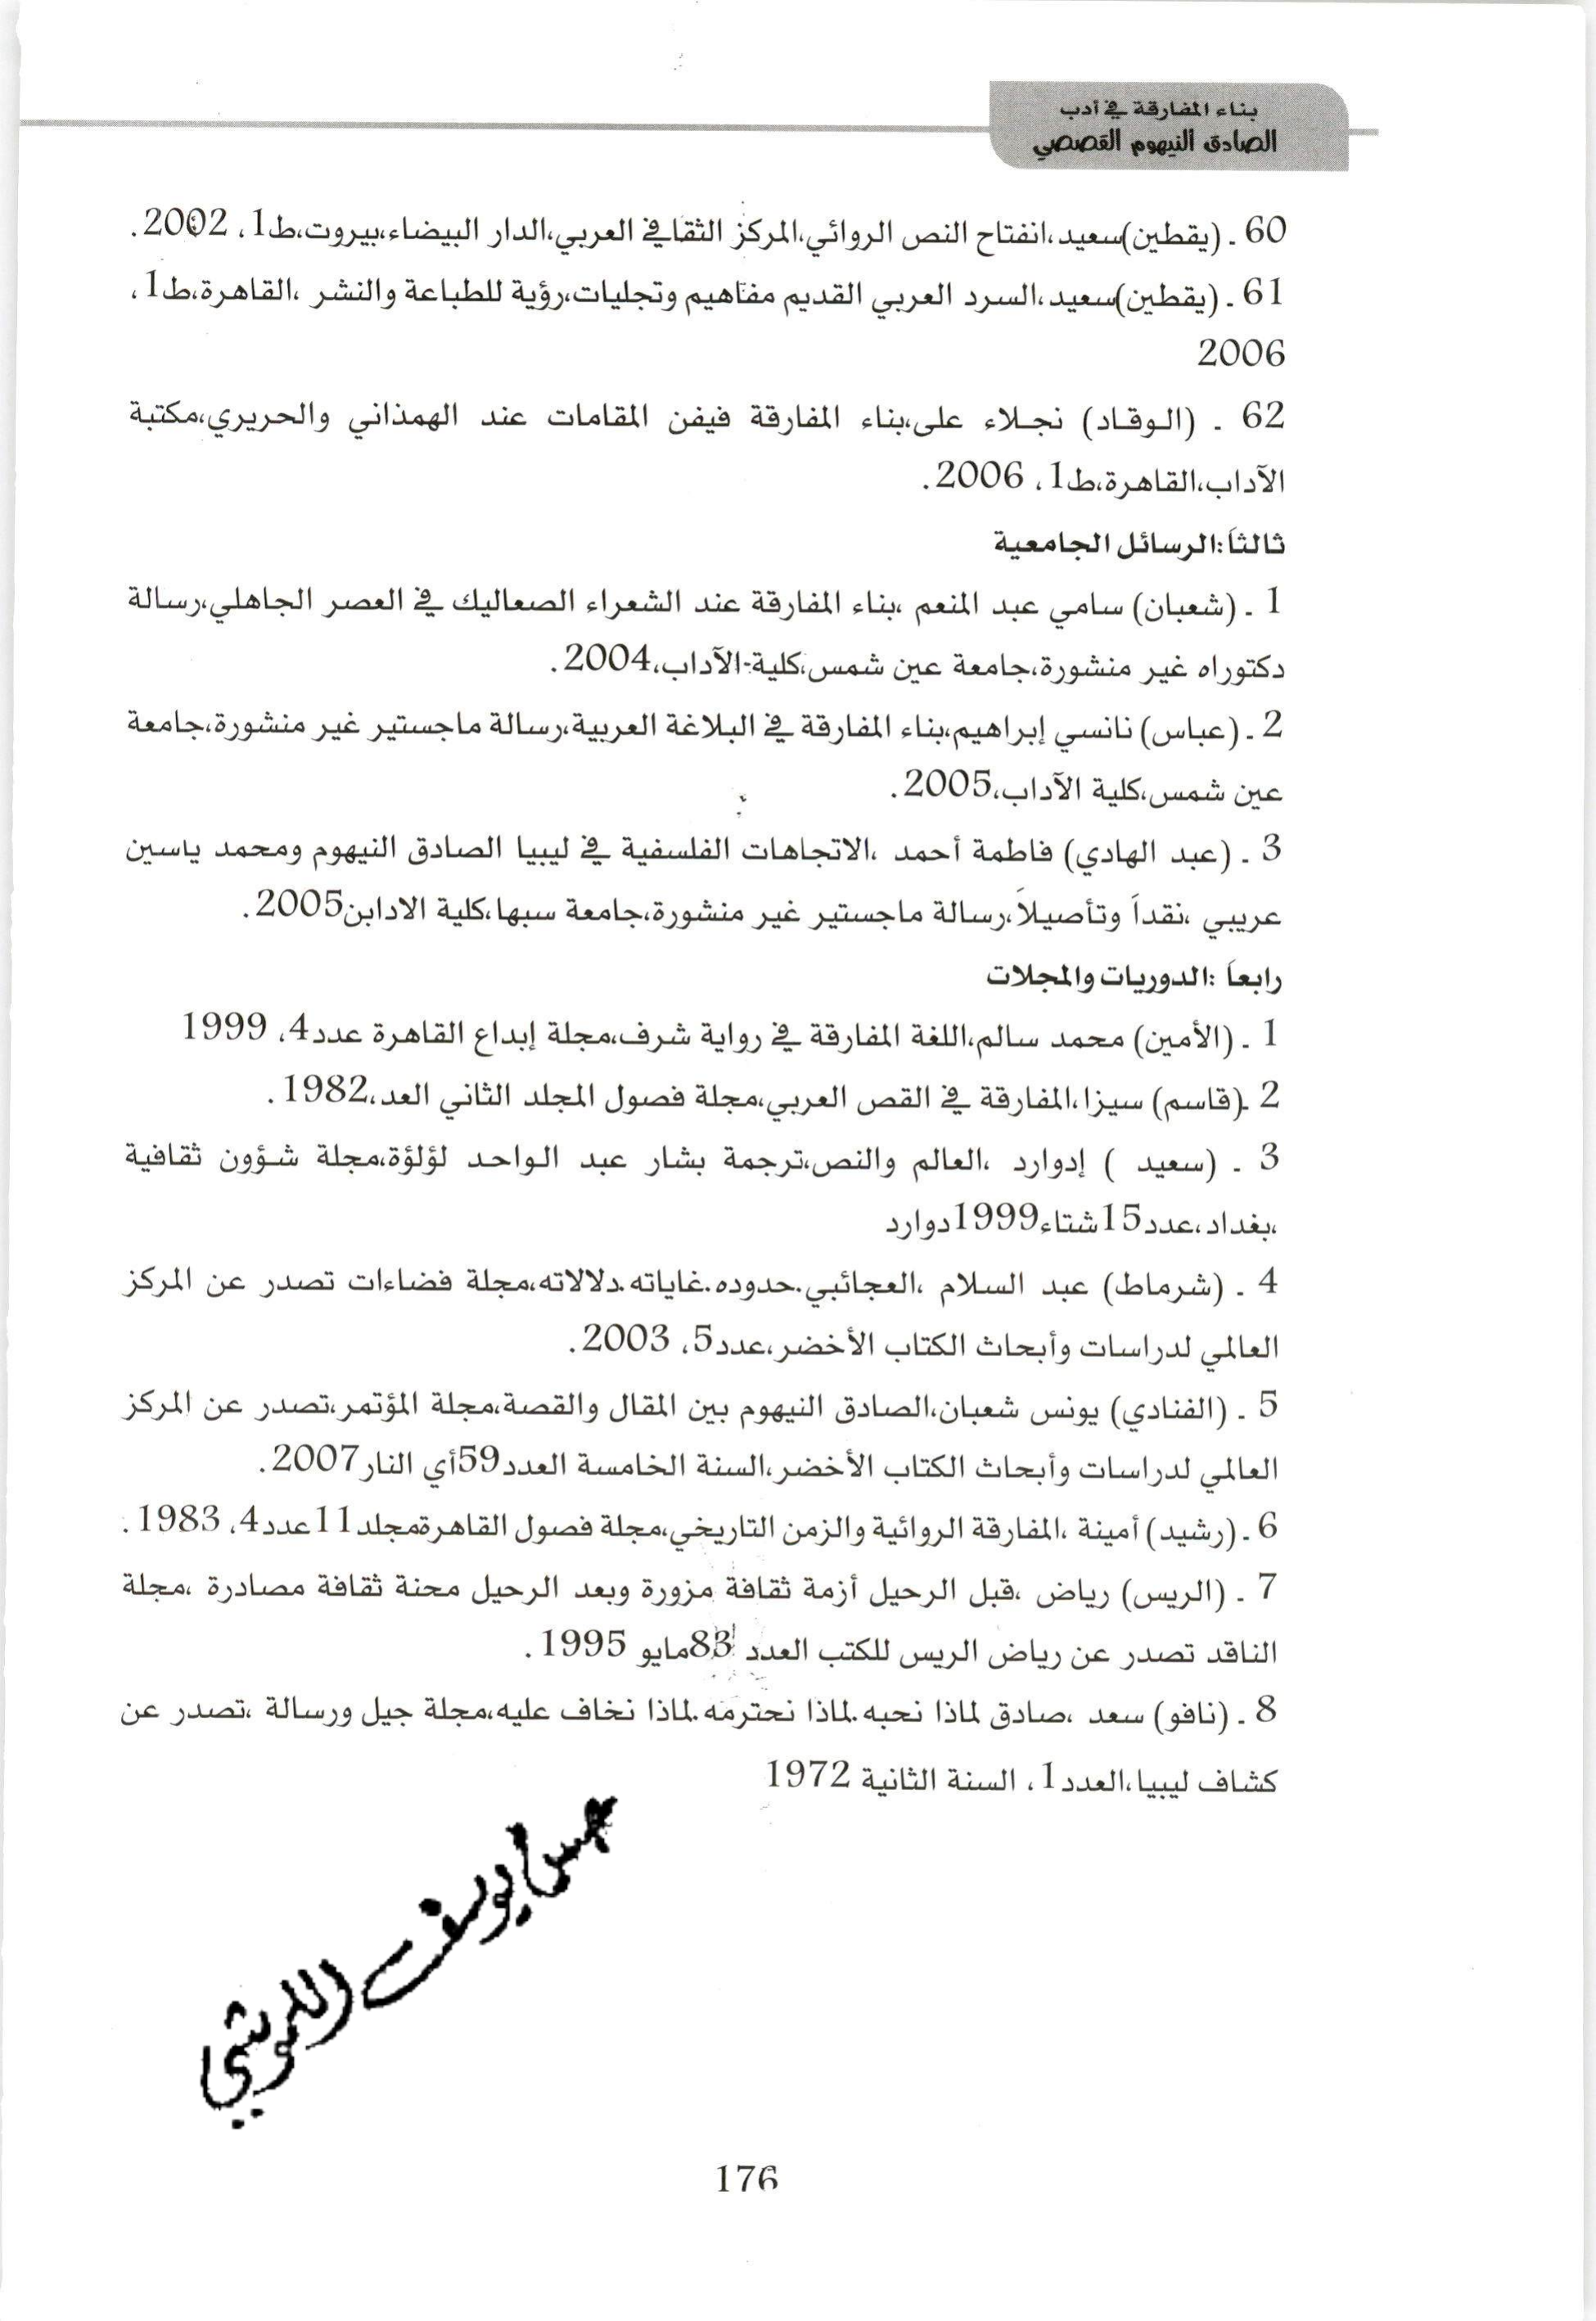 بناء المفارقة في أدب
الصادق النيهوم القصصي
60 ـ (يقطين)سعيد،انفتاح النص الروائي،المركز الثقافي العربي،الدار البيضاء،بيروت،ط1، 2002.
61 ـ (يقطين)سعيد،السرد العربي القديم مفاهيم وتجليات،رؤية للطباعة والنشر ،القاهرة،ط1،
2006
62 ـ (الوقاد) نجلاء على،بناء المفارقة فيفن المقامات عند الهمذاني والحريري،مكتبة
الآداب،القاهرة،ط1، 2006.
ثالثاً:الرسائل الجامعية
1 ـ (شعبان) سامي عبد المنعم ،بناء المفارقة عند الشعراء الصعاليك في العصر الجاهلي،رسالة
دكتوراه غير منشورة،جامعة عين شمس،كلية-الآداب،2004.
2 ـ (عباس) نانسي إبراهيم،بناء المفارقة في البلاغة العربية،رسالة ماجستير غير منشورة،جامعة
عين شمس،كلية الآداب،2005.
3 ـ (عبد الهادي) فاطمة أحمد ،الاتجاهات الفلسفية في ليبيا الصادق النيهوم ومحمد ياسين
عريبي ،نقداً وتأصيلاً،رسالة ماجستير غير منشورة،جامعة سبها،كلية الادابن2005.
رابعاً :الدوريات والمجلات
1 ـ (الأمين) محمد سالم،اللغة المفارقة في رواية شرف،مجلة إبداع القاهرة عدد4، 1999
2 ـ(قاسم) سيزا،المفارقة في القص العربي،مجلة فصول المجلد الثاني العد،1982.
3 ـ (سعيد ) إدوارد ،العالم والنص،ترجمة بشار عبد الواحد لؤلؤة،مجلة شؤون ثقافية
،بغداد،عدد15شتاء1999دوارد
4 ـ (شرماط) عبد السلام ،العجائبي.حدوده.غاياته.دلالاته،مجلة فضاءات تصدر عن المركز
العالمي لدراسات وأبحاث الكتاب الأخضر،عدد5، 2003.
5 ـ (الفنادي) يونس شعبان،الصادق النيهوم بين المقال والقصة،مجلة المؤتمر،تصدر عن المركز
العالمي لدراسات وأبحاث الكتاب الأخضر،السنة الخامسة العدد59أي النار2007.
6 ـ (رشيد) أمينة ،المفارقة الروائية والزمن التاريخي،مجلة فصول القاهرةمجلد11عدد4، 1983.
7 ـ (الريس) رياض ،قبل الرحيل أزمة ثقافة مزورة وبعد الرحيل محنة ثقافة مصادرة ،مجلة
الناقد تصدر عن رياض الريس للكتب العدد 83مايو 1995.
8 ـ (نافو) سعد ،صادق لماذا نحبه.لماذا نحترمه.لماذا نخاف عليه،مجلة جيل ورسالة ،تصدر عن
كشاف ليبيا،العدد1، السنة الثانية 1972
يوسف
176